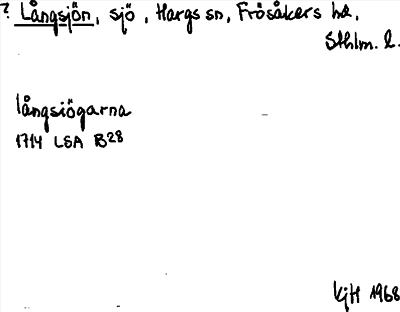 ? Långsjön, sjö, Hargs sn, Frösåkers hd,
Sthlm. l.
långsiögarna
1714 LSA B28
KjH 1968